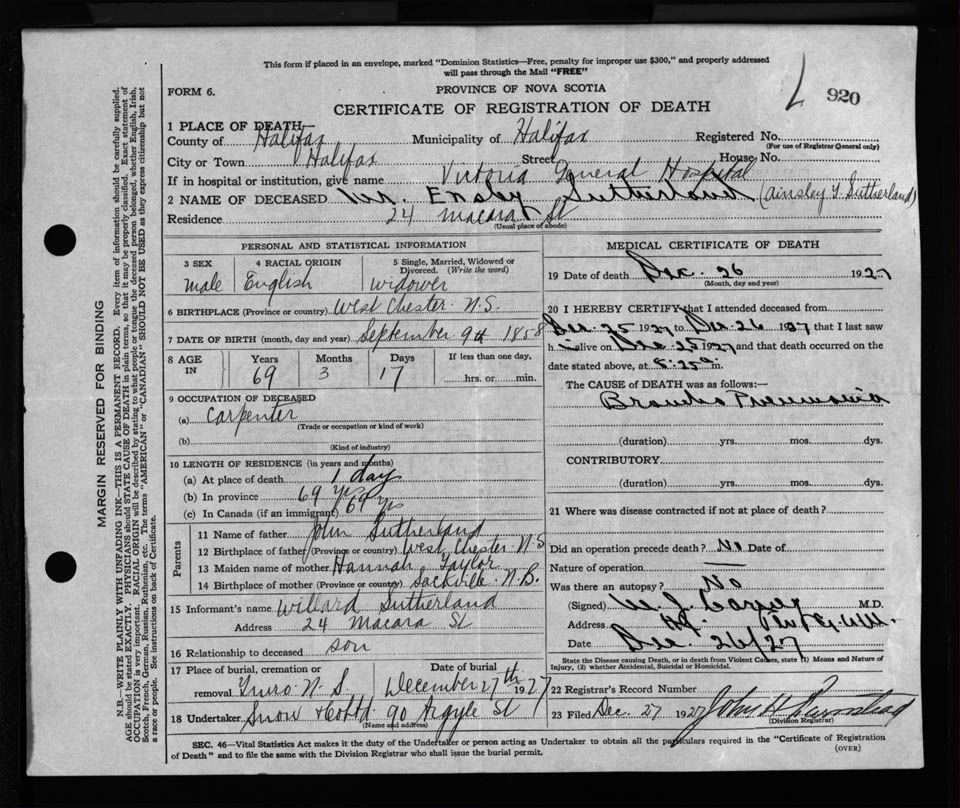 This form if placed in an envelope, marked "Dominion Statistics—Free, penalty for improper use $300," and properly addressed
will pass through the Mail "FREE"
FORM 6.
PROVINCE OF NOVA SCOTIA
920
CERTIFICATE OF REGISTRATION OF DEATH
1 PLACE OF DEATH—
County of Halifax Municipality of Halifax Registered No.
(For use of Registrar General only)
City or Town Halifax Street House No.
If in hospital or institution, give name Victoria General Hospital
2 NAME OF DECEASED Mr. Ensley Sutherland (Ainsley T. Sutherland)
Residence 24 Macara St
(Usual place of abode)
PERSONAL AND STATISTICAL INFORMATION
3 SEX 4 RACIAL ORIGIN 5 Single, Married, Widowed or
Divorced. (Write the word)
male English widower
6 BIRTHPLACE (Province or country) West Chester N.S.
7 DATE OF BIRTH (month, day and year) September 9th 1858
8 AGE IN Years Months Days If less than one day,
69 3 17 hrs. or min.
9 OCCUPATION OF DECEASED
(a) Carpenter
(Trade or occupation or kind of work)
(b)
(Kind of industry)
10 LENGTH OF RESIDENCE (in years and months)
(a) At place of death 1 day
(b) In province 69 yrs
(c) In Canada (if an immigrant) 69 yrs
Parents
11 Name of father John Sutherland
12 Birthplace of father (Province or country) West Chester N.S
13 Maiden name of mother Hannah Taylor
14 Birthplace of mother (Province or country) Sackville N.B.
15 Informant's name Willard Sutherland
Address 24 Macara St
16 Relationship to deceased son
17 Place of burial, cremation or Date of burial
removal Truro N.S. December 27th 1927
18 Undertaker Snow & Co Ltd 90 Argyle St
(Name and address)
MEDICAL CERTIFICATE OF DEATH
19 Date of death Dec. 26 1927
(Month, day and year)
20 I HEREBY CERTIFY that I attended deceased from
Dec. 25 1927 to Dec. 26 1927 that I last saw
h im alive on Dec 25 1927 and that death occurred on the
date stated above, at 8.25 a m.
The CAUSE OF DEATH was as follows:—
Broncho Pneumonia
(duration) yrs. mos. dys.
CONTRIBUTORY
(duration) yrs. mos. dys.
21 Where was disease contracted if not at place of death?
Did an operation precede death? No Date of
Nature of operation —
Was there an autopsy? No
(Signed) M.D.
Address
Date Dec. 26/27
State the Disease causing Death, or in death from Violent Causes, state (1) Means and Nature of
Injury, (2) whether Accidental, Suicidal or Homicidal.
22 Registrar's Record Number
23 Filed Dec 27 1927 John H
(Division Registrar)
SEC. 46—Vital Statistics Act makes it the duty of the Undertaker or person acting as Undertaker to obtain all the particulars required in the "Certificate of Registration
of Death" and to file the same with the Division Registrar who shall issue the burial permit.
(OVER)
MARGIN RESERVED FOR BINDING
N.B.—WRITE PLAINLY WITH UNFADING INK—THIS IS A PERMANENT RECORD. Every item of information should be carefully supplied.
AGE should be stated EXACTLY. PHYSICIANS should STATE CAUSE OF DEATH in plain terms, so that it may be properly classified. Exact statement of
OCCUPATION is very important. RACIAL ORIGIN will be described by stating to what people or tongue the deceased person belonged, whether English, Irish,
Scotch, French, German, Russian, Ruthenian, etc. The terms "AMERICAN" or "CANADIAN" SHOULD NOT BE USED as they express citizenship but not
a race or people. See instructions on back of Certificate.